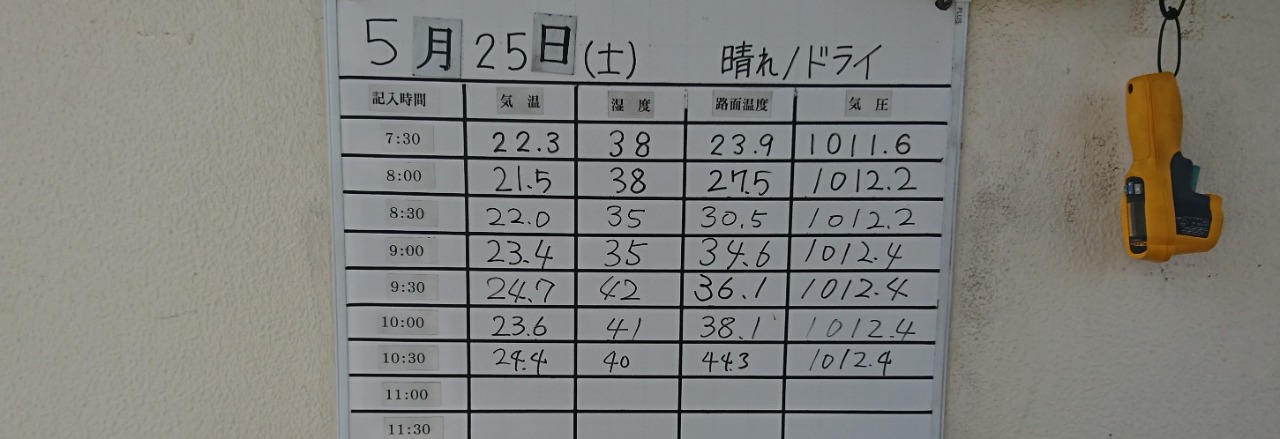 PLUS
5月25日(土) 晴れ/ドライ
記入時間 気温 湿度 路面温度 気圧
7:30 22.3 38 23.9 1011.6
8:00 21.5 38 27.5 1012.2
8:30 22.0 35 30.5 1012.2
9:00 23.4 35 34.6 1012.4
9:30 24.7 42 36.1 1012.4
10:00 23.6 41 38.1 1012.4
10:30 24.4 40 44.3 1012.4
11:00
11:30